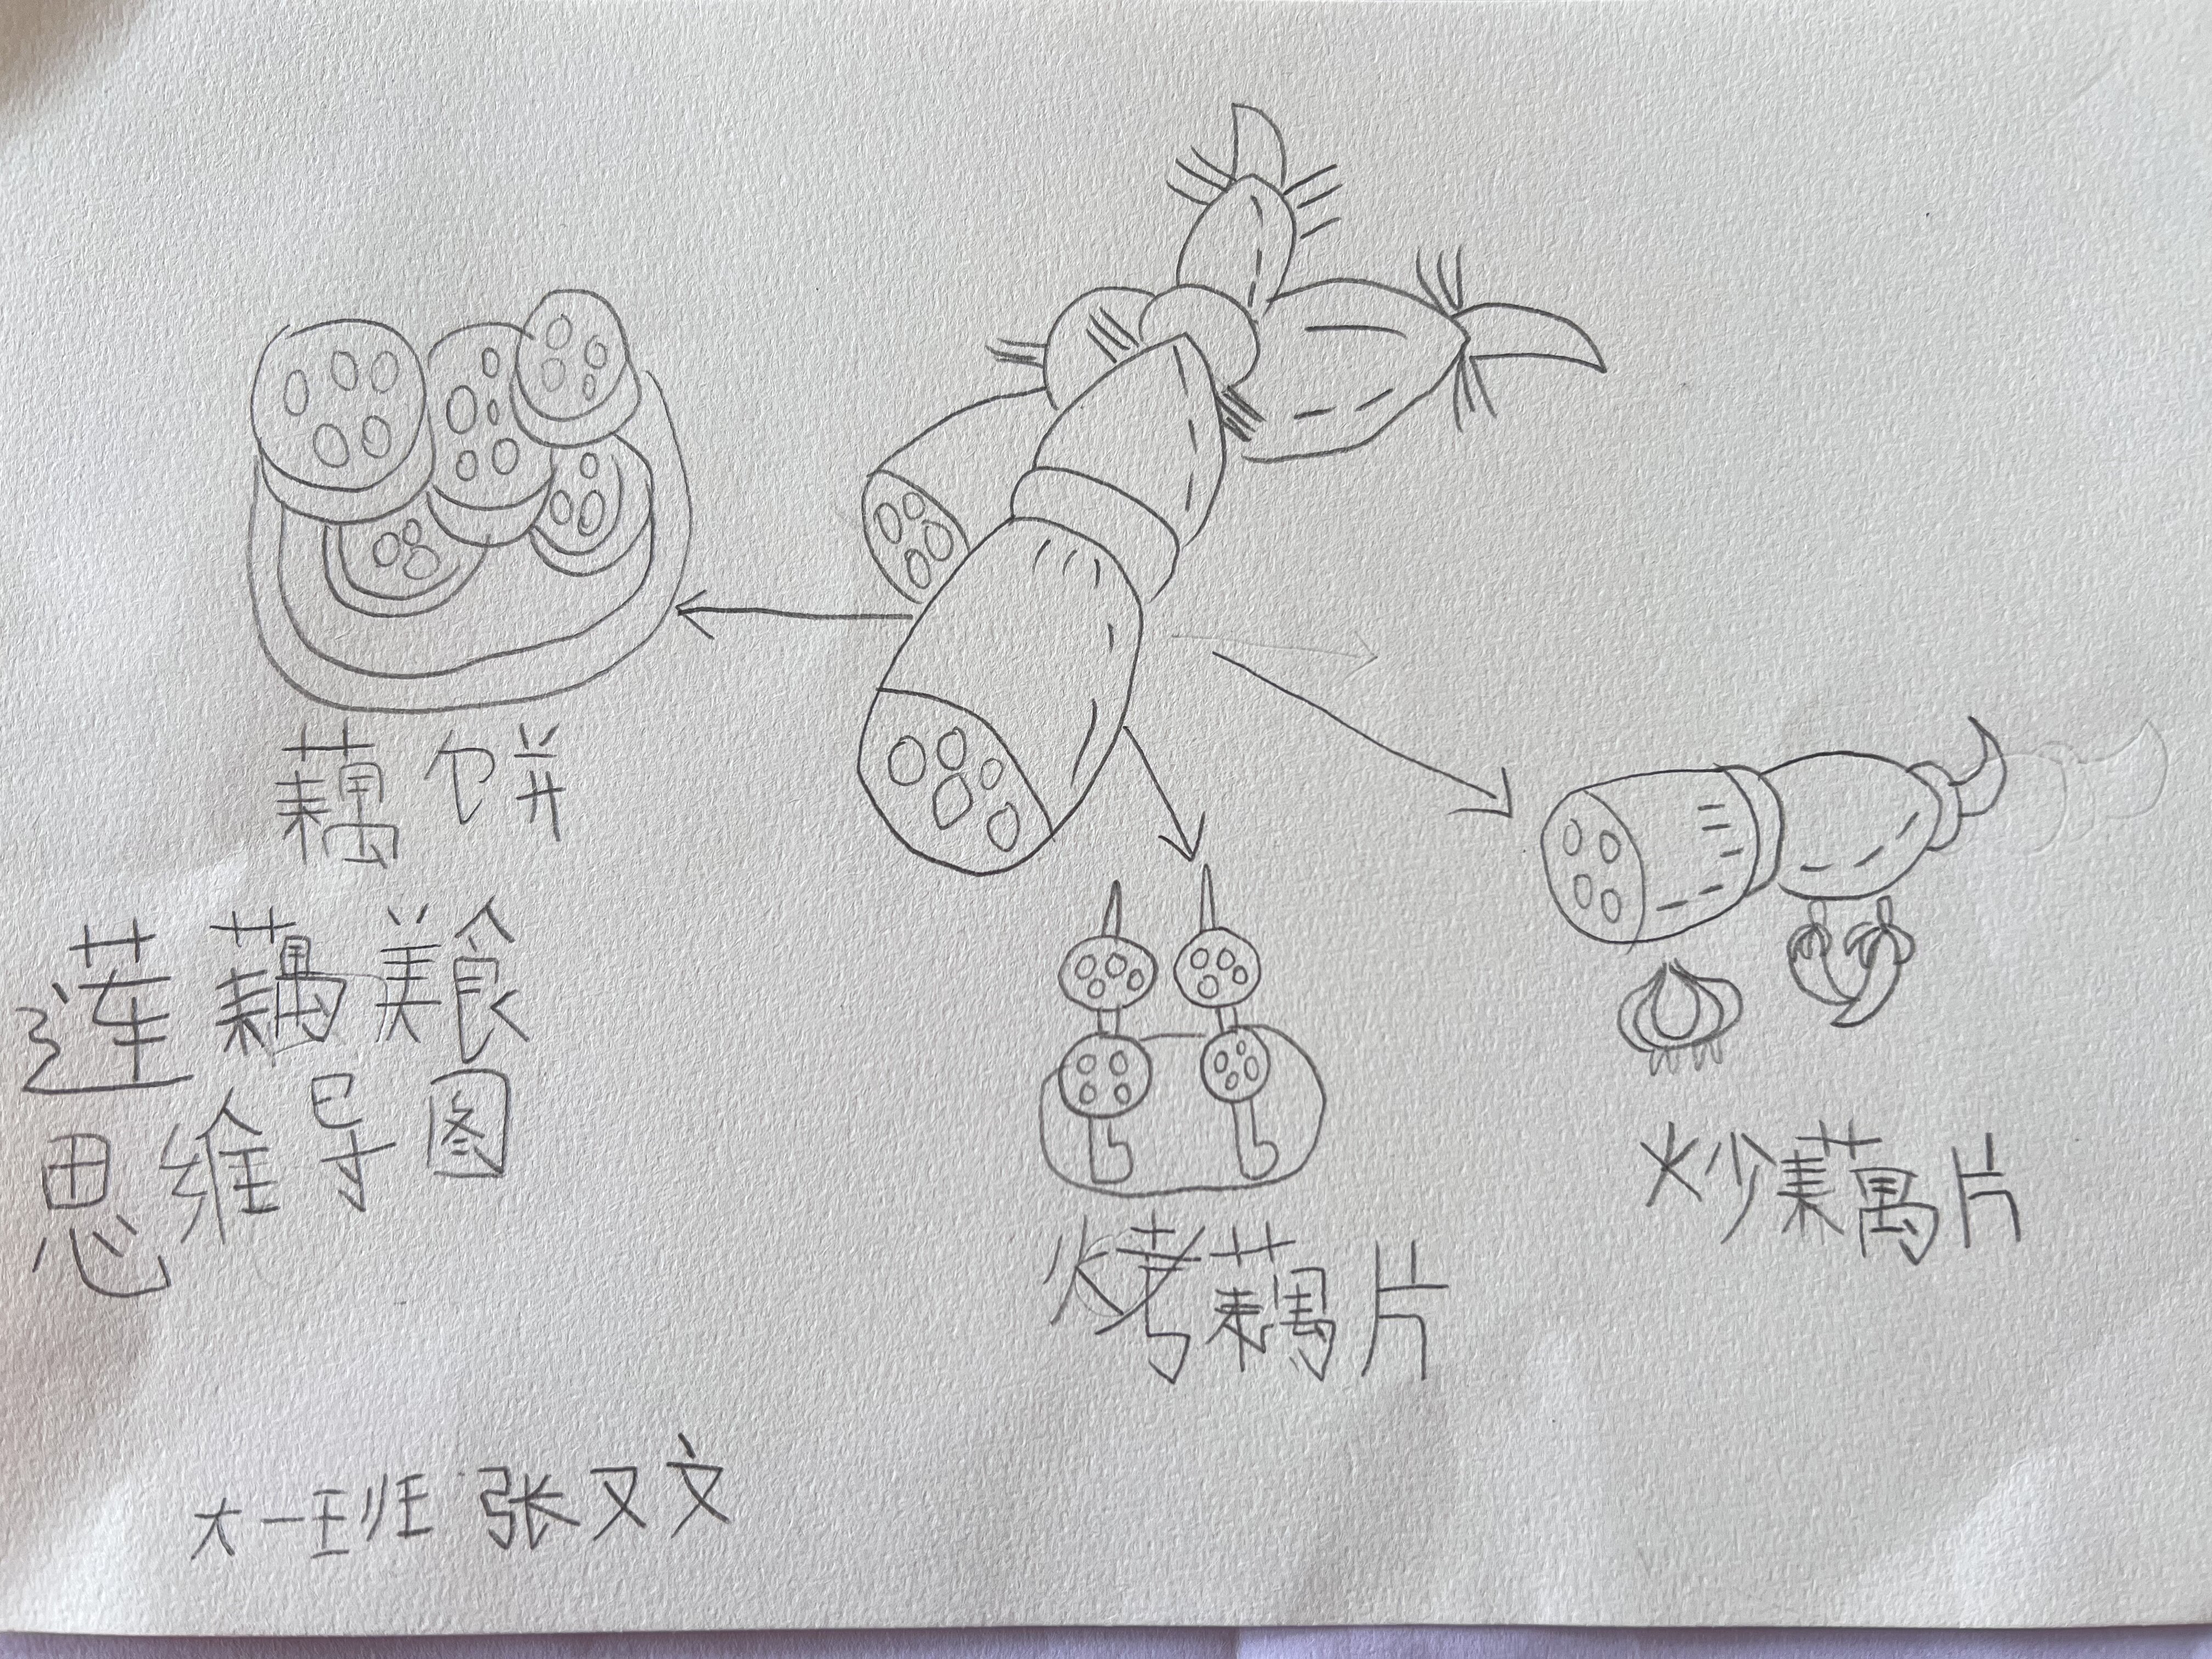 藕饼
莲藕美食
思维导图
烤藕片
炒藕片
大一班 张又文